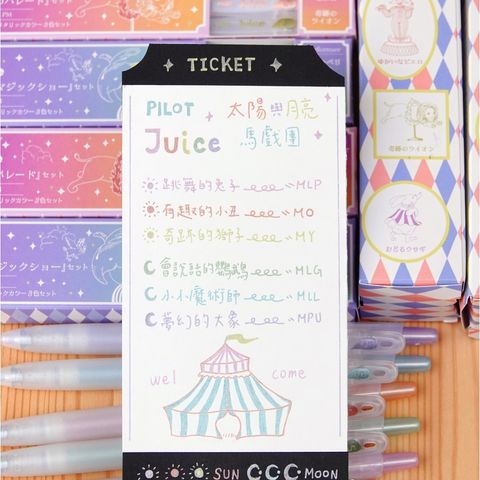 TICKET
PILOT 太陽與月亮
Juice 馬戲團
跳舞的兔子 MLP
有趣的小丑 MO
奇跡的獅子 MY
會說話的鸚鵡 MLG
小小魔術師 MLL
夢幻的大象 MPU
wel come
SUN CCC MOON
パレード』セット
タリックカラー3色セット
マジックショー』セット
ックカラー3色セット
パレード』セット
ックカラー3色セット
ジックショー』セット
ックカラー3色セット
ゆかいなピエロ
奇跡のライオン
奇跡のライオン
おどるウサギ